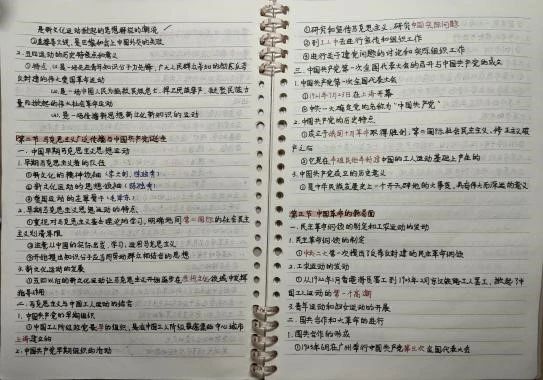 是新文化运动掀起的思想解放的潮流
③直接导火线,是巴黎和会上中国外交的失败
2.五四运动的历史特点和意义
①特点:(1)是一场以先进青年知识分子为先锋,广大人民群众参加的彻底反帝
反封建的伟大爱国革命运动
(2)是一场中国人民为拯救民族危亡、捍卫民族尊严、凝聚民族力
量而掀起的伟大社会革命运动
(3)是一场传播新思想新文化新知识的运动
第二节 马克思主义广泛传播与中国共产党诞生
一、中国早期马克思主义思想运动
1.早期马克思主义者的队伍
①新文化的精神领袖(李大钊、陈独秀)
②新文化运动的思想领袖(陈独秀)
③爱国运动的左翼骨干(毛泽东)
2.早期马克思主义思想运动的特点
①重视对马克思主义基本理论的学习,明确地同第二国际的社会民主
主义划清界限
②注意从中国的实际出发,学习、运用马克思主义
③开始提出知识分子应当同劳动群众相结合的思想
3.新文化运动的发展
①五四以后的新文化运动让马克思主义开始逐步在思想文化领域中发挥
指导作用
二、马克思主义与中国工人运动的结合
1.中国共产党的早期组织
①中国工人阶级政党最早的组织,是在中国工人阶级最密集的中心城市
上海建立的
2.中国共产党早期组织的活动
①研究和宣传马克思主义,研究中国实际问题
②到工人中去进行宣传和组织工作
③进行关于建党问题的讨论和实际组织工作
三、中国共产党第一次全国代表大会的召开与中国共产党的成立
1.中国共产党第一次全国代表大会
①1921年7月23日在上海开幕
②中共一大确定党的名称为“中国共产党”
2.中国共产党的历史特点
①成立于俄国十月革命取得胜利,第二国际社会民主主义、修正主义破
产之后
②它是在半殖民地半封建中国的工人运动基础上产生的
3.中国共产党成立的历史意义
①是中华民族发展史上一个开天辟地的大事变,具有伟大而深远的意义
第三节 中国革命的新局面
一、民主革命纲领的制定和工农运动的发动
1.民主革命纲领的制定
①中共二大第一次提出了反帝反封建的民主革命纲领
2.工农运动的发动
①从1922年1月香港海员罢工到1923年2月京汉铁路工人罢工,掀起了中
国工人运动的第一个高潮
3.青年运动和妇女运动的开展
二、国共合作和大革命的进行
1.国共合作的形成
①1923年6月在广州举行中国共产党第三次全国代表大会